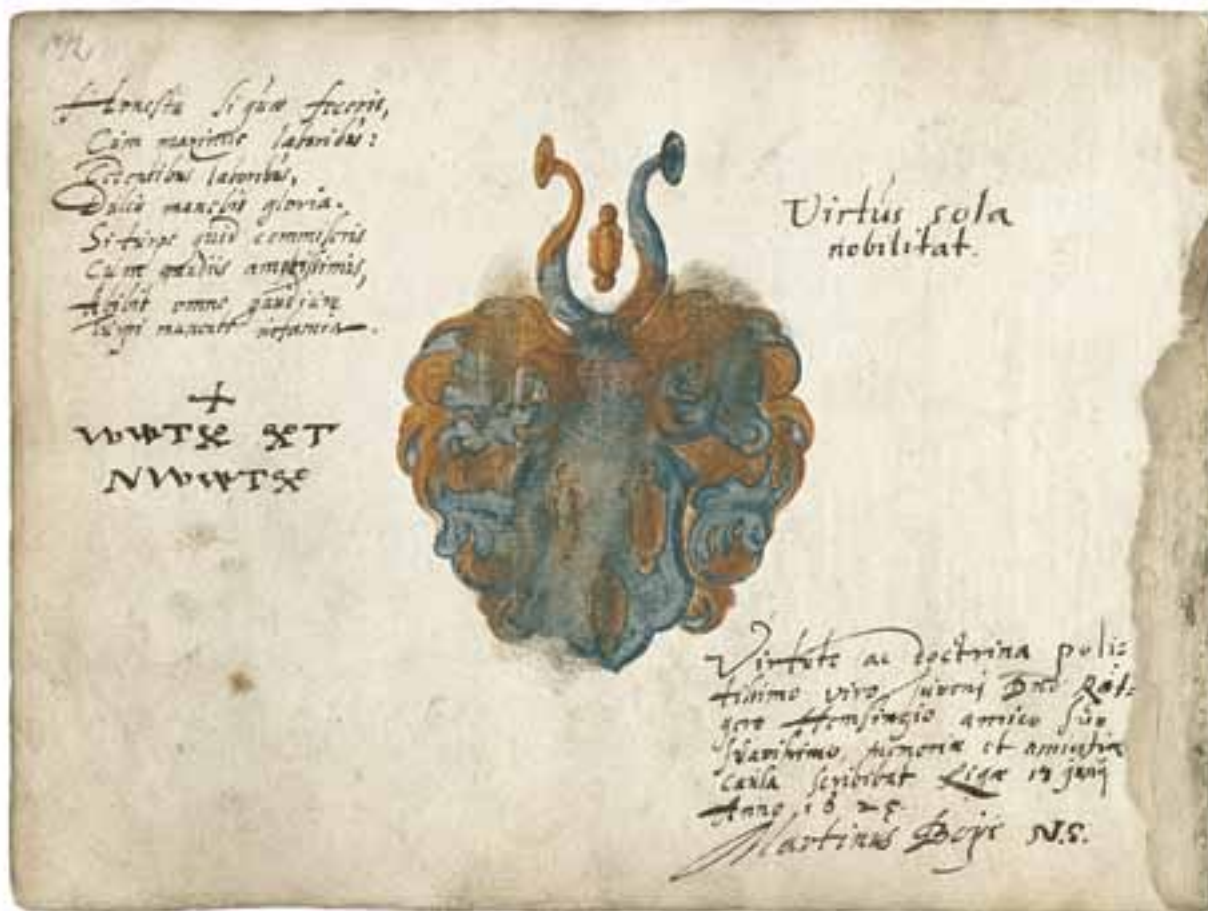 Honesta si quae feceris,
Cum maximis laboribus:
Cedentibus laboribus,
Dulcis manebit gloria.
Si turpe quid commiseris
Cum gaudiis amplissimis,
Abibit omne gaudium
Turpi manente infamia.
Virtus sola
nobilitat.
Virtute ac doctrina poli:
tissimo viro juveni Dno Rot:
gero Hemsingio amico suo
suavissimo, memoriae et amicitiae
causa scribebat Rigae 17 junij
Anno 1625.
Martinus Boÿe N.S.